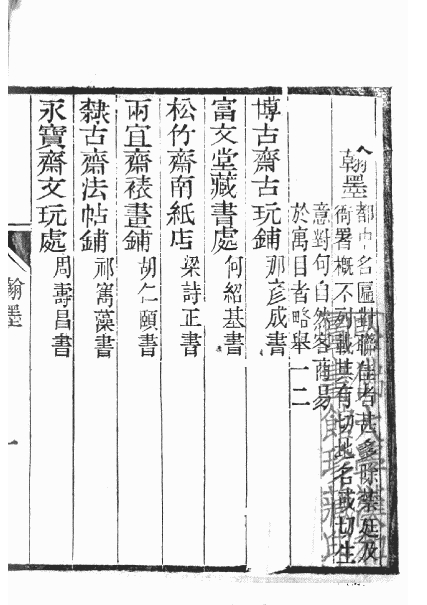 翰墨
都中名匾對聯佳者甚多除禁廷及
衙署概不列載其有切地名或切生
意對句自然客商易
於寓目者略舉一二
博古齋古玩鋪 那彥成書
富文堂藏書處 何紹基書
松竹齋南紙店 梁詩正書
兩宜齋裱畫鋪 胡仁頤書
隸古齋法帖鋪 祁寯藻書
永寶齋文玩處 周壽昌書
翰墨 一